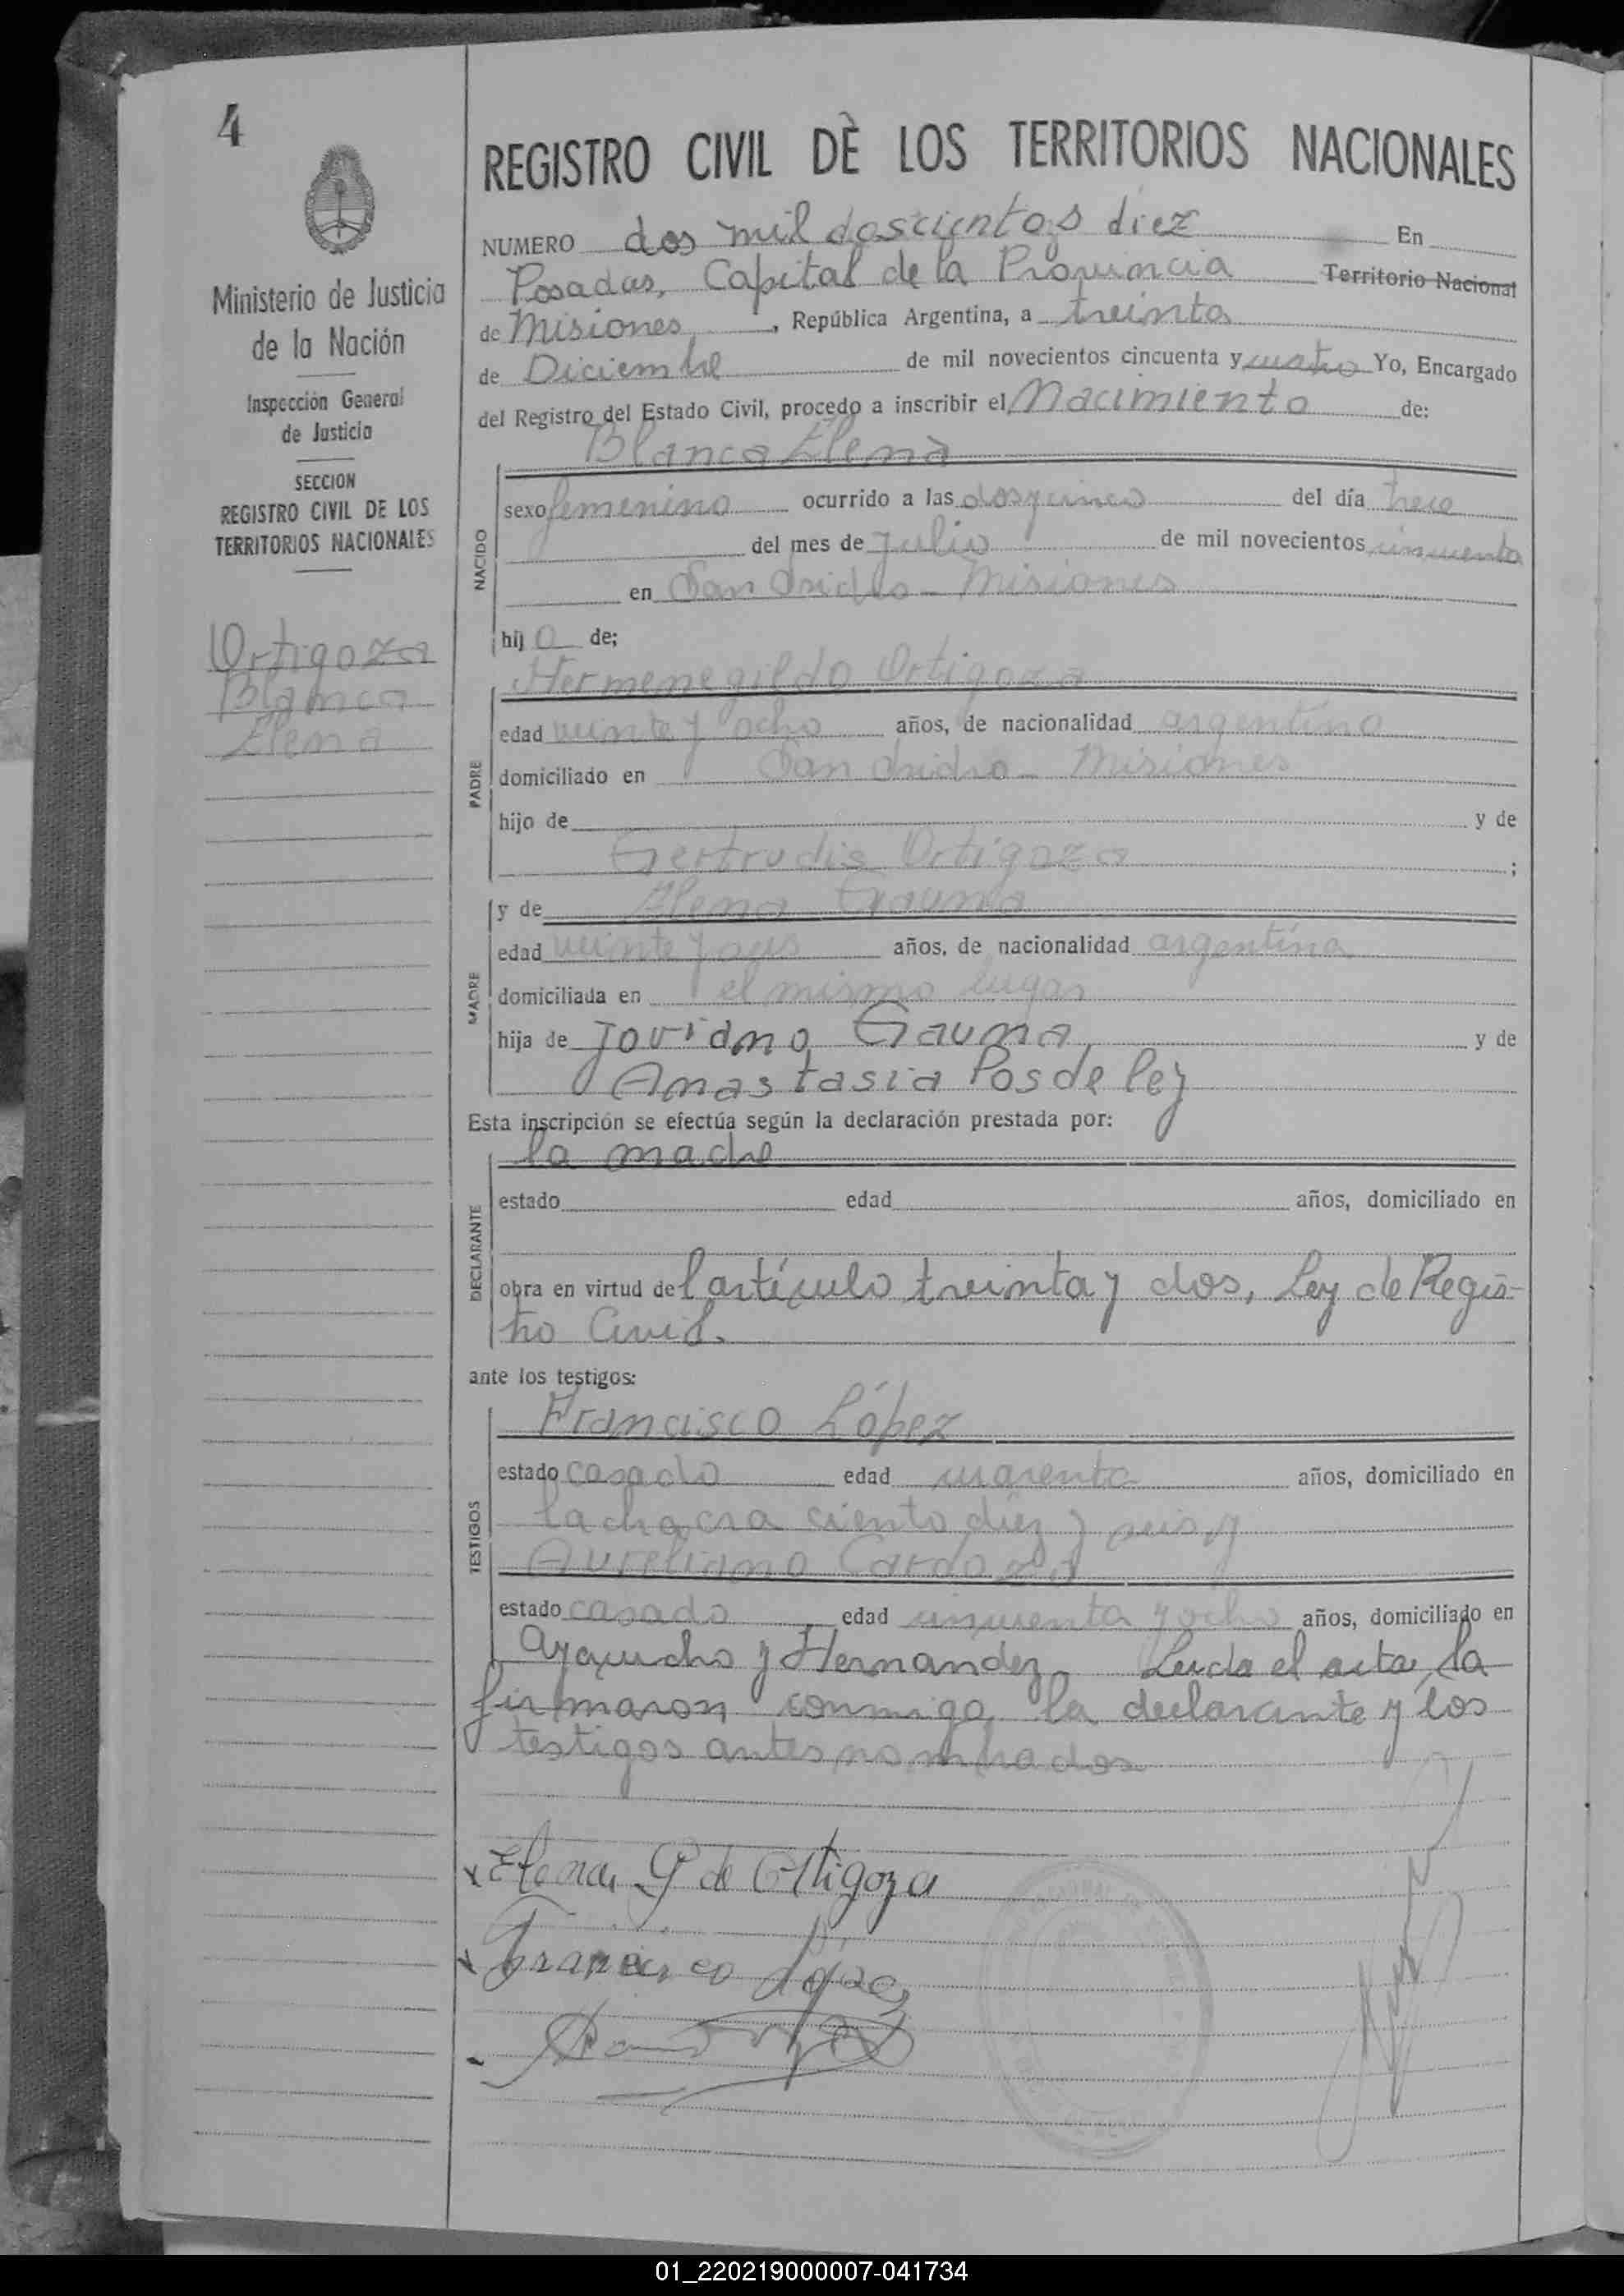 4
Ministerio de Justicia
de la Nación
Inspección General
de Justicia
SECCION
REGISTRO CIVIL DE LOS
TERRITORIOS NACIONALES
Ortigoza
Blanca
Elena
REGISTRO CIVIL DE LOS TERRITORIOS NACIONALES
NUMERO dos mil doscientos diez En
Posadas, Capital de la Provincia Territorio Nacional
de Misiones, República Argentina, a treinta
de Diciembre de mil novecientos cincuenta y cuatro Yo, Encargado
del Registro del Estado Civil, procedo a inscribir el Nacimiento de:
Blanca Elena
NACIDO
sexo femenino ocurrido a las dos y cinco del día trece
del mes de Julio de mil novecientos cincuenta
en San Isidro - Misiones
hija de;
Hermenegildo Ortigoza
PADRE
edad veinte y ocho años, de nacionalidad argentino
domiciliado en San Isidro - Misiones
hijo de y de
Gertrudis Ortigoza ;
y de Elena Gauna
MADRE
edad veinte y seis años, de nacionalidad argentina
domiciliada en el mismo lugar
hija de Joviano Gauna y de
Anastasia Posdeley
Esta inscripción se efectúa según la declaración prestada por:
la madre
DECLARANTE
estado edad años, domiciliado en
obra en virtud del artículo treinta y dos, Ley de Regis-
tro Civil.
ante los testigos:
Francisco López
TESTIGOS
estado casado edad cuarenta años, domiciliado en
la chacra ciento diez y seis y
Aureliano Cardozo
estado casado edad cincuenta y ocho años, domiciliado en
Ayacucho y Hernandez. Leida el acta, la
firmaron conmigo, la declarante y los
testigos antes nombrados
x Elena G de Ortigoza
x Francisco López
01_220219000007-041734